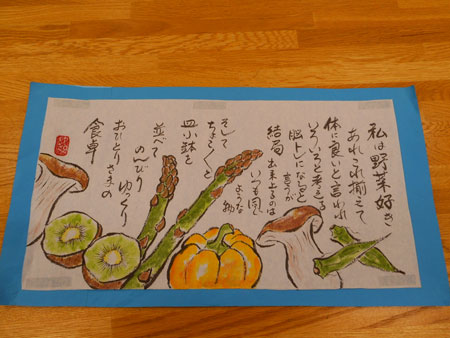 私は野菜好き
あれこれ揃えて
体に良いと言われ
いろいろと考える
脳トレになると
言うが
結局出来上るのは
いつも同じ
ような物
そして
ちょこっと
皿小鉢を
並べて
のんびり ゆっくり
おひとりさまの
食卓